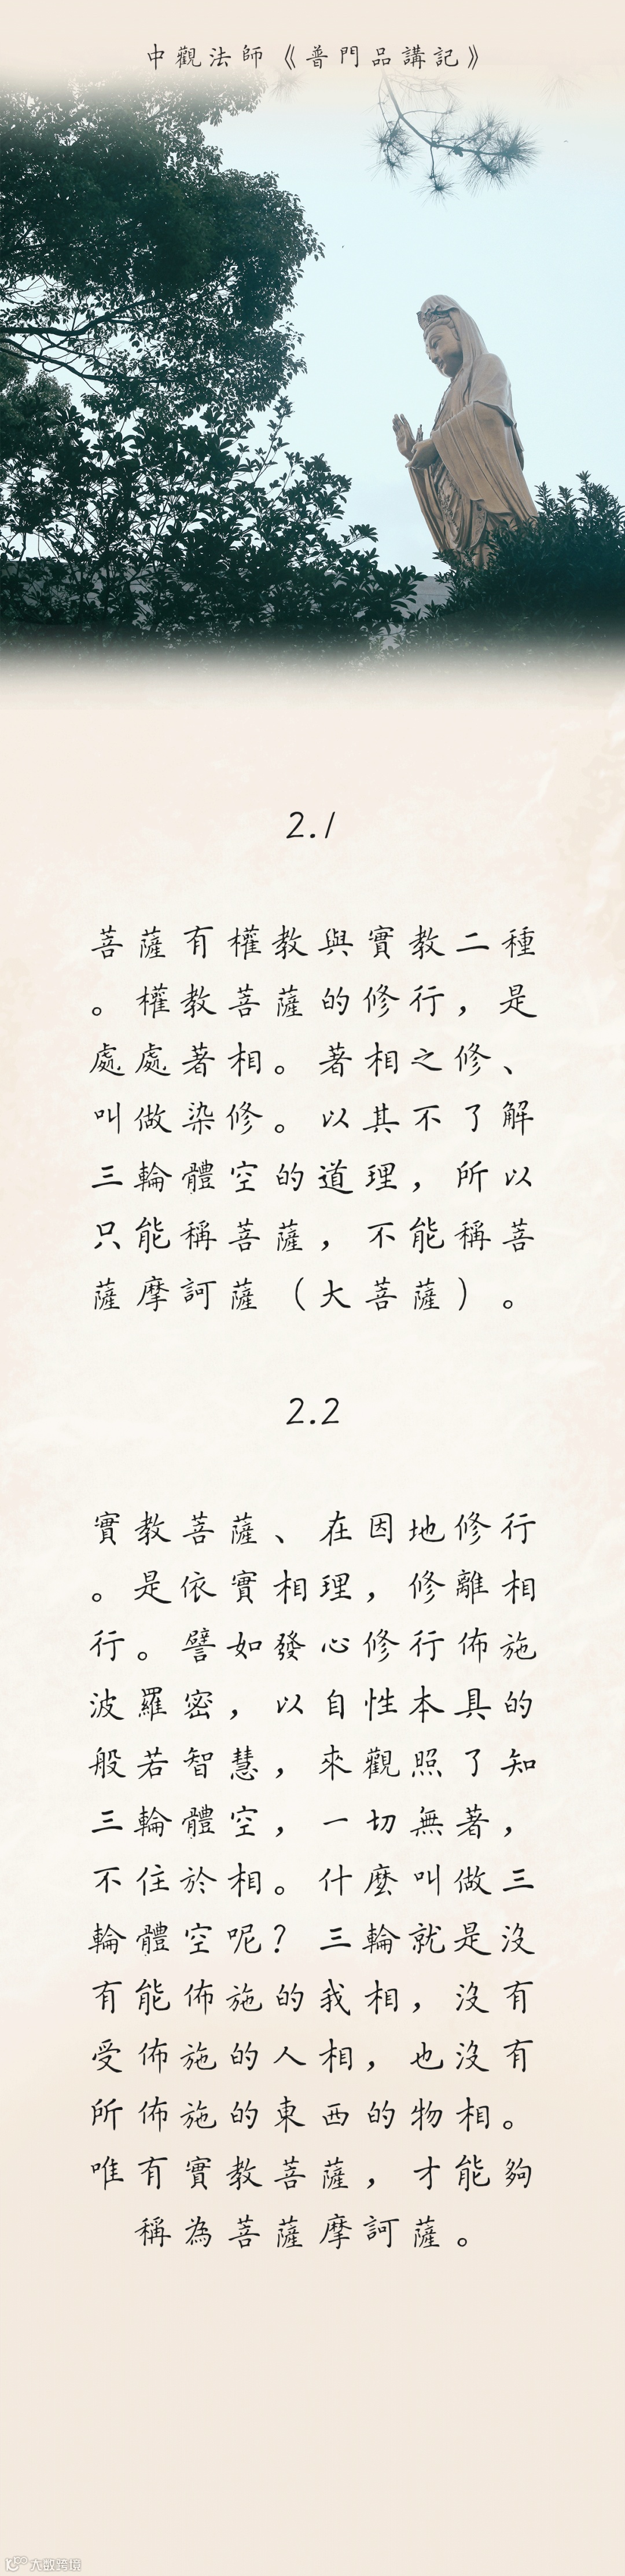 中觀法師《普門品講記》
2.1
菩薩有權教與實教二種
。權教菩薩的修行，是
處處著相。著相之修、
叫做染修。以其不了解
三輪體空的道理，所以
只能稱菩薩，不能稱菩
薩摩訶薩（大菩薩）。
2.2
實教菩薩、在因地修行
。是依實相理，修離相
行。譬如發心修行佈施
波羅密，以自性本具的
般若智慧，來觀照了知
三輪體空，一切無著，
不住於相。什麼叫做三
輪體空呢？三輪就是沒
有能佈施的我相，沒有
受佈施的人相，也沒有
所佈施的東西的物相。
唯有實教菩薩，才能夠
稱為菩薩摩訶薩。
大數跨境